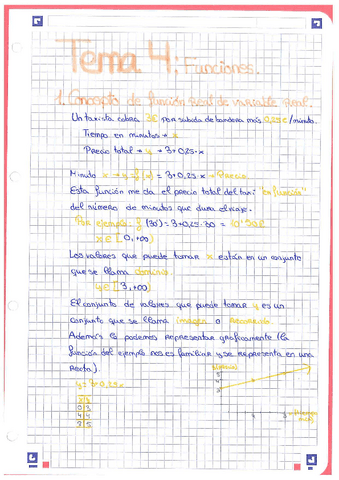 Tema 4: Funciones.
1. Concepto de función Real de variable Real.
Un taxista cobra 3€ por subada de bandera más 0,25€/minuto.
Tiempo en minutos → x
Precio total → y → 3+0,25·x
Minuto x → y = f(x) = 3+0,25·x → Precio.
Esta función me da el precio total del taxi "en función"
del número de minutos que dura el viaje.
Por ejemplo: f(30) = 3+0,25·30 = 10'50€
x ∈ [0,+∞)
Los valores que puede tomar x están en un conjunto
que se llama dominio.
y ∈ [3,+∞)
El conjunto de valores que puede tomar y es un
conjunto que se llama imagen o recorrido.
Además la podemos representar gráficamente (la
función del ejemplo nos es familiar y se representa en una
Recta).
y = 3+0,25x
x|y
0|3
4|4
8|5
5
4
3